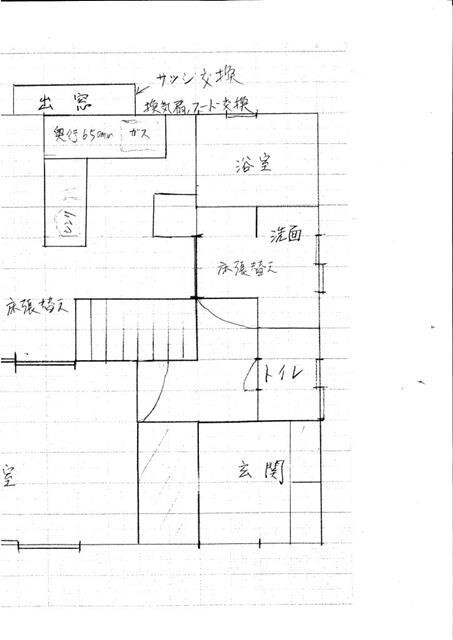 サッシ交換
出窓
換気扇、フード交換
奥行650mm
ガス
浴室
洗面
床張替え
床張替え
トイレ
室
玄関